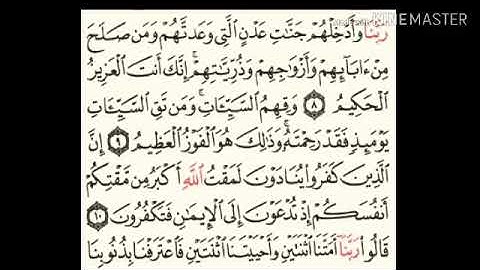 KINEMASTER
رَبَّنَا وَأَدْخِلْهُمْ جَنَّٰتِ عَدْنٍ ٱلَّتِى وَعَدتَّهُمْ وَمَن صَلَحَ
مِنْ ءَابَآئِهِمْ وَأَزْوَٰجِهِمْ وَذُرِّيَّٰتِهِمْ ۚ إِنَّكَ أَنتَ ٱلْعَزِيزُ
ٱلْحَكِيمُ ۝٨ وَقِهِمُ ٱلسَّيِّـَٔاتِ ۚ وَمَن تَقِ ٱلسَّيِّـَٔاتِ
يَوْمَئِذٍ فَقَدْ رَحِمْتَهُۥ ۚ وَذَٰلِكَ هُوَ ٱلْفَوْزُ ٱلْعَظِيمُ ۝٩ إِنَّ
ٱلَّذِينَ كَفَرُوا۟ يُنَادَوْنَ لَمَقْتُ ٱللَّهِ أَكْبَرُ مِن مَّقْتِكُمْ
أَنفُسَكُمْ إِذْ تُدْعَوْنَ إِلَى ٱلْإِيمَٰنِ فَتَكْفُرُونَ ۝١٠
قَالُوا۟ رَبَّنَآ أَمَتَّنَا ٱثْنَتَيْنِ وَأَحْيَيْتَنَا ٱثْنَتَيْنِ فَٱعْتَرَفْنَا بِذُنُوبِنَا